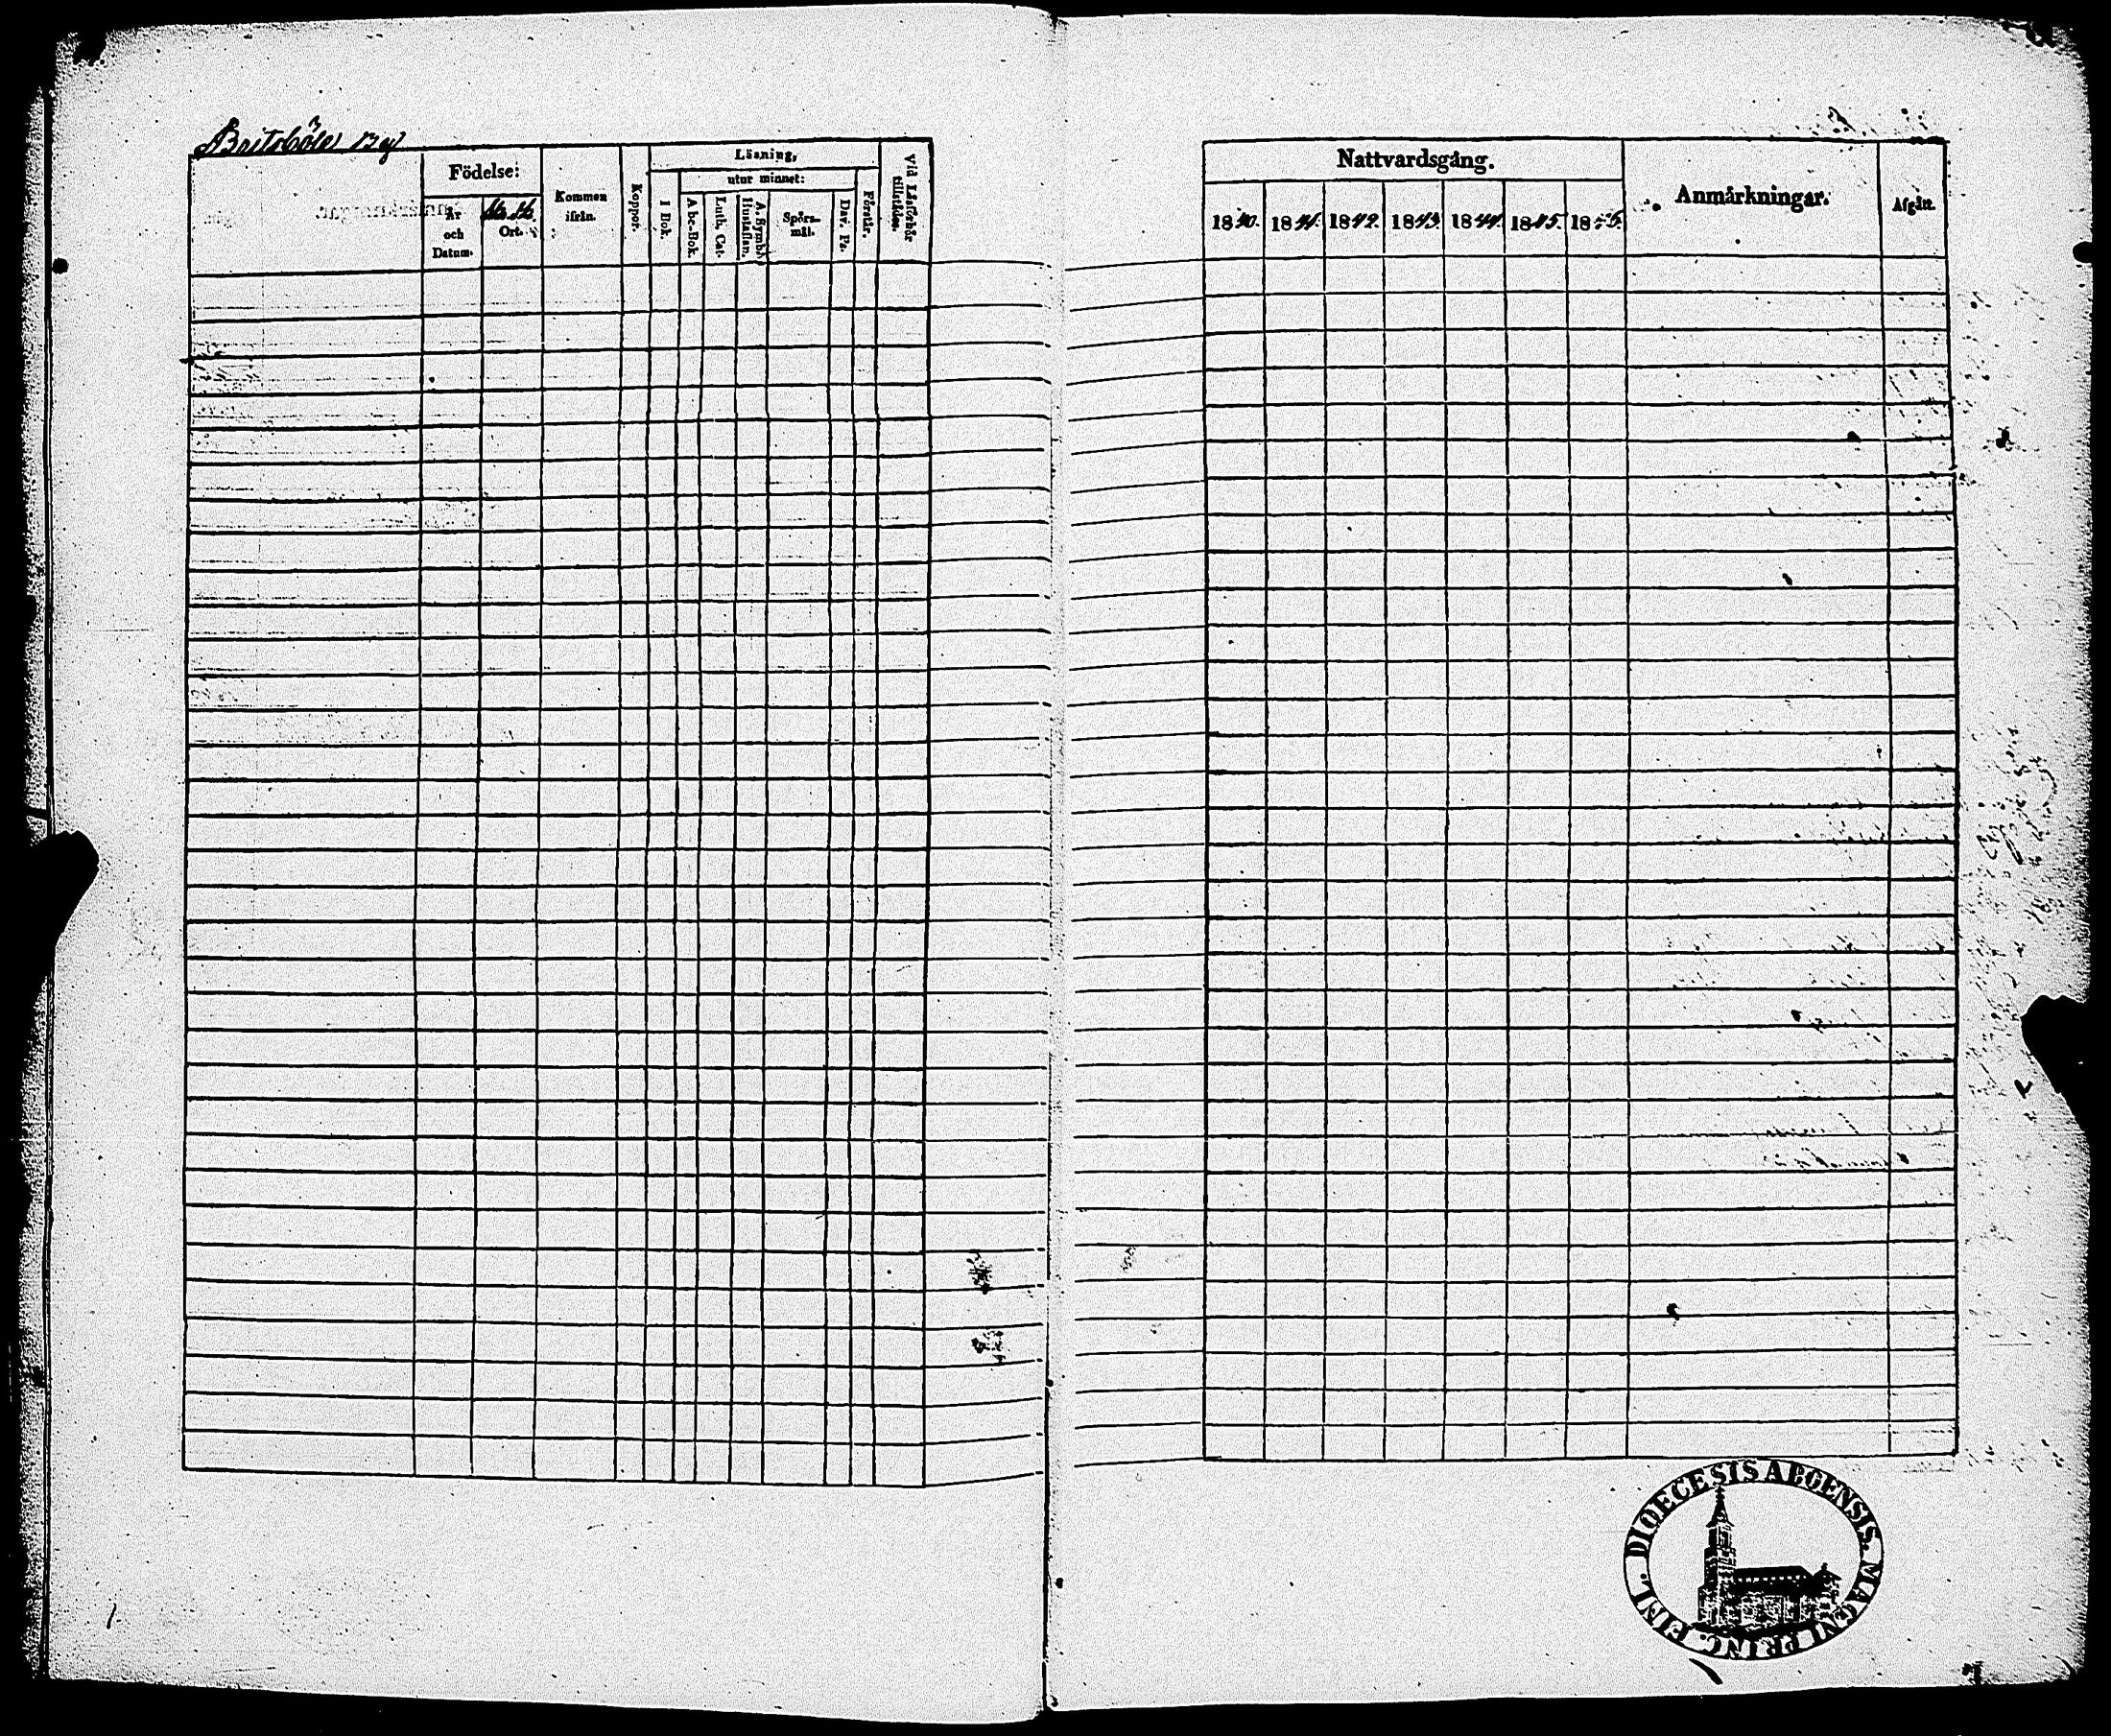 Britsböle By
Födelse:
År
och
Datum.
Ort.
Kommen
ifrån.
Koppor.
Läsning,
utur minnet:
I Bok.
Abc-Bok.
Luth. Cat.
A. Symb.
Hustaflan.
Spörs-
mål.
Dav. Ps.
Förstår.
Vid Läsförhör
tillstädes.
Nattvardsgång.
1840. 1841. 1842. 1843. 1844. 1845. 18
Anmärkningar.
Afgått.
DIOECESIS ABOENSIS. MAGNI PRINC. FINL.